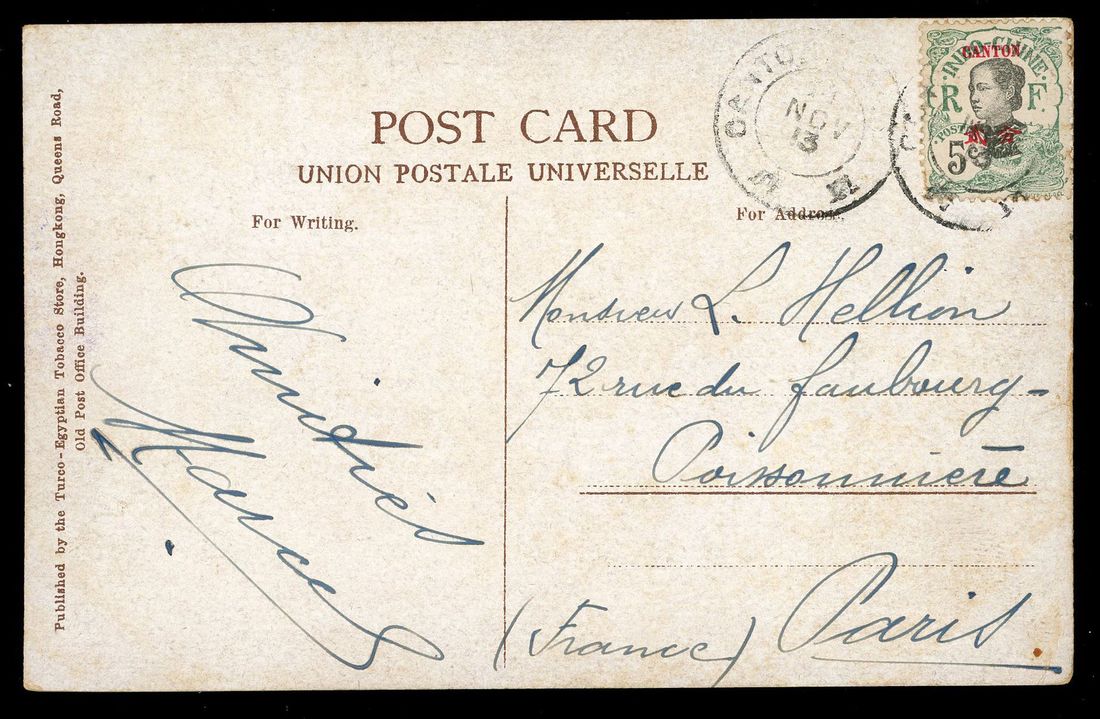 POST CARD
UNION POSTALE UNIVERSELLE
For Writing.
For Address.
Published by the Turco-Egyptian Tobacco Store, Hongkong, Queens Road,
Old Post Office Building.
Amitiés
Marcel
Monsieur L. Hellion
72 rue du faubourg-
Poissonnière
Paris
(France)
CANTON
NOV
13
INDO-CHINE
CANTON
R F
POSTES
5